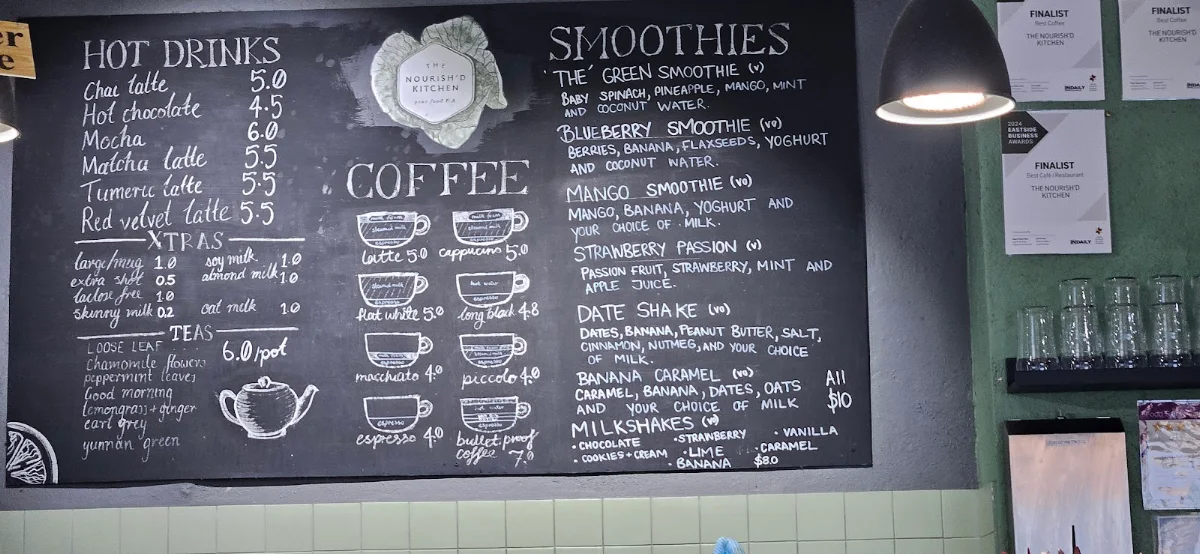 HOT DRINKS
Chai latte 5.0
Hot chocolate 4.5
Mocha 6.0
Matcha latte 5.5
Tumeric latte 5.5
Red velvet latte 5.5
XTRAS
large/mug 1.0
extra shot 0.5
lactose free 1.0
skinny milk 0.2
soy milk 1.0
almond milk 1.0
oat milk 1.0
TEAS
LOOSE LEAF
6.0/pot
Chamomile flowers
peppermint leaves
Good morning
lemongrass + ginger
earl grey
yunnan green
THE
NOURISH'D
KITCHEN
COFFEE
milk foam
steamed milk
espresso
latte 5.0
milk foam
steamed milk
espresso
cappucino 5.0
steamed milk
espresso
flat white 5.0
hot water
espresso
long black 4.8
espresso
macchiato 4.0
steamed milk
espresso
piccolo 4.0
espresso
espresso 4.0
espresso
bullet proof
coffee 7.0
SMOOTHIES
'THE' GREEN SMOOTHIE (V)
BABY SPINACH, PINEAPPLE, MANGO, MINT
AND COCONUT WATER.
BLUEBERRY SMOOTHIE (VO)
BERRIES, BANANA, FLAXSEEDS, YOGHURT
AND COCONUT WATER.
MANGO SMOOTHIE (VO)
MANGO, BANANA, YOGHURT AND
YOUR CHOICE OF MILK.
STRAWBERRY PASSION (V)
PASSION FRUIT, STRAWBERRY, MINT AND
APPLE JUICE.
DATE SHAKE (VO)
DATES, BANANA, PEANUT BUTTER, SALT,
CINNAMON, NUTMEG, AND YOUR CHOICE
OF MILK.
BANANA CARAMEL (VO)
CARAMEL, BANANA, DATES, OATS
AND YOUR CHOICE OF MILK
All
$10
MILKSHAKES (VO)
• CHOCOLATE • STRAWBERRY • VANILLA
• COOKIES + CREAM • LIME • CARAMEL
• BANANA $8.0
er
e
FINALIST
Best Coffee
THE NOURISH'D
KITCHEN
INDAILY
FINALIST
Best Coffee
THE NOURISH'D
KITCHEN
INDAILY
2024
EASTSIDE
BUSINESS
AWARDS
FINALIST
Best Café/Restaurant
THE NOURISH'D
KITCHEN
INDAILY